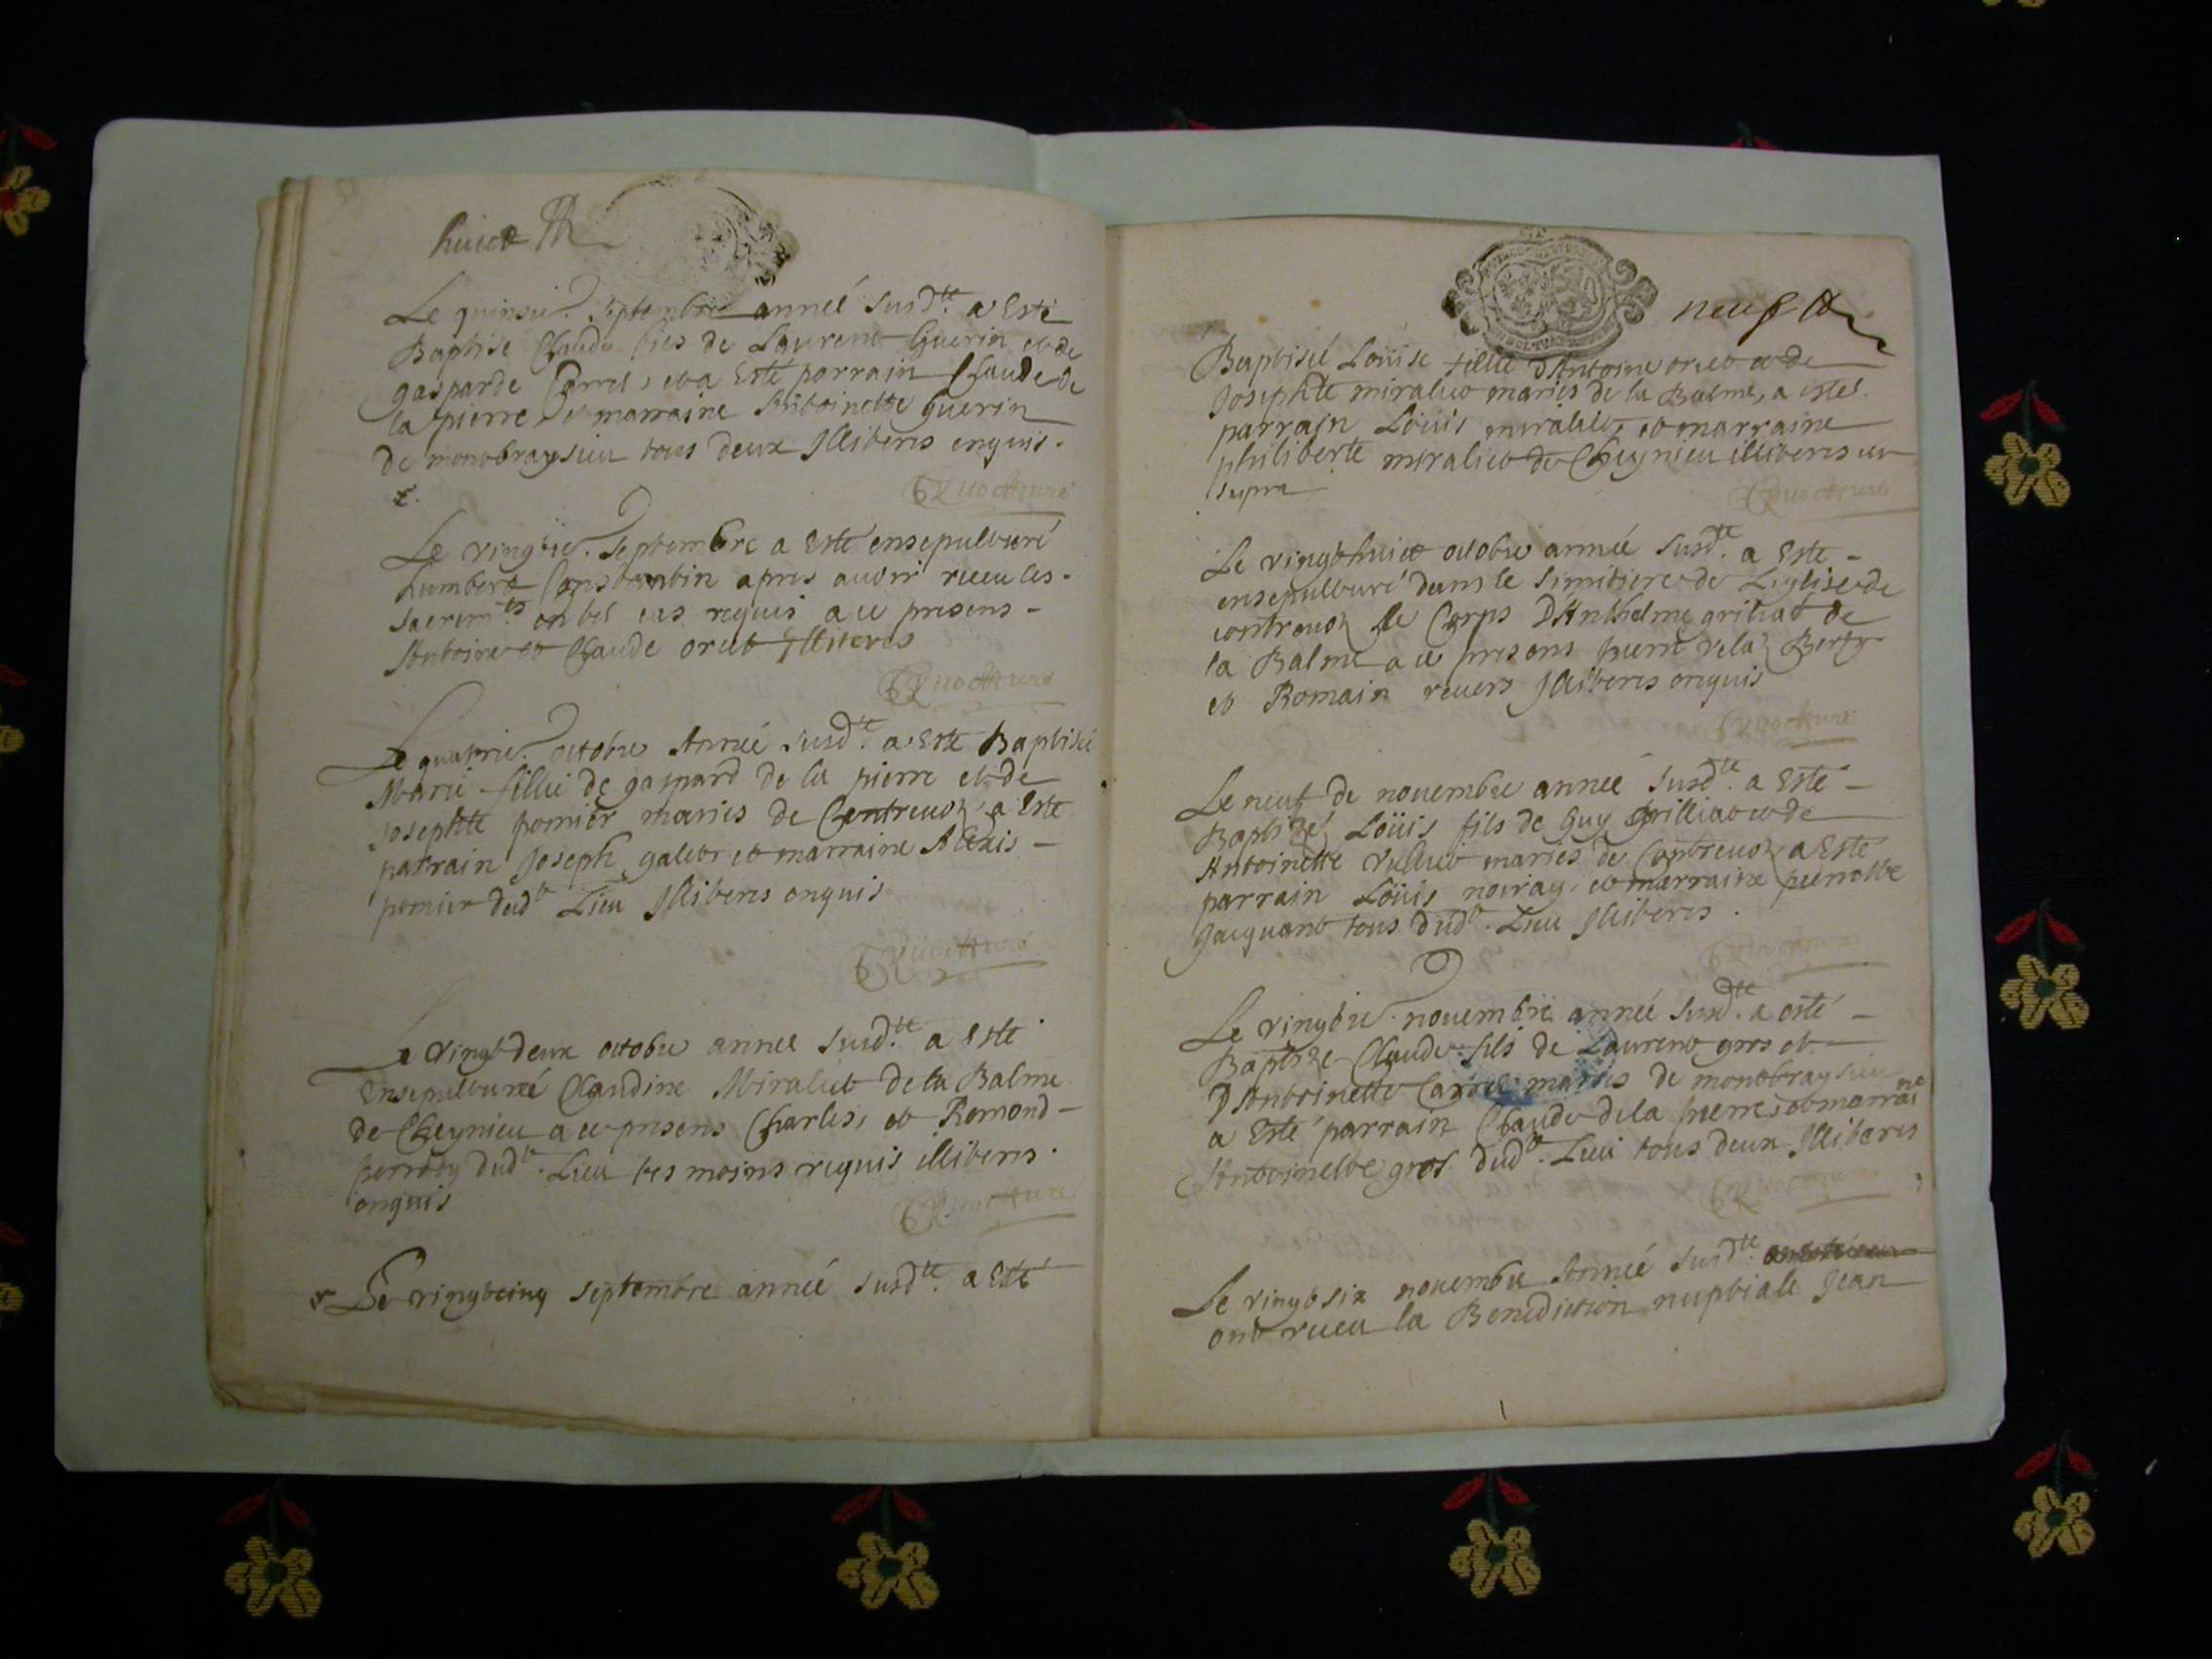 huict
Le quinzie. Septembre anneé susd.te a Esté
Baptisé Claude fils de Laurent Guerin et de
gasparde Carrel, et a Esté parrain Claude de
la pierre et marraine Antoinette guerin
de montbraysieu tous deux Illiteres enquis.
Le vingtie. Septembre a Esté ensepulturé
humbert Constantin apres auoir receu les
sacrem.ts en tel cas requis a ce presens
Antoine et Claude oriet Illiteres
Le quatrie. octobre Anneé susd.te a Esté Baptisée
Marie fillie de gaspard de la pierre et de
Josephte pomier maries de Contreuoz a Esté
parrain Joseph galet et marraine Alexis
pomier dud.t Lieu Illiteres enquis
Le vingtdeux octobre anneé susd.te a Esté
Ensepulturée Claudine Miraliet de la Balme
de Cheynieu a ce presens Charles, et Remond
perrody dud.t Lieu tesmoins requis illiteres
enquis
Le vingtcinq septembre anneé susd.te a Esté
neuf
Baptiseé Loüise fillie D'Antoine oriet et de
Josephte miraliet maries de la Balme, a esté
parrain Loüis miraliet, et marraine
philiberte miraliet de Cheynieu illiteres ut
supra
Le vingthuict octobre anneé susd.te a Esté
ensepulturé dans le simitiere de Leglise de
contreuoz le Corps D'Anthelme grilliat de
la Balme a ce presens pierre
et Romain reuers Illiteres enquis
Le neuf de nouembre anneé susd.te a Esté
Baptizé Loüis fils de Guy Grilliat et de
Antoinette maries de Contreuoz a Esté
parrain Loüis noiray et marraine pernette
Jacquent tous dud.t Lieu Illiteres.
Le vingtie. nouembre anneé susd.te a esté
Baptize Claude fils de Laurent gros et
D'Antoinette Carrel maries de montbraysieu
a Esté parrain Claude de la pierre, et marraine
Antoinette gros dud.t Lieu tous deux Illiteres
Le vingtsix nouembre Anneé susd.te
ont receu la Benediction nuptiale Jean